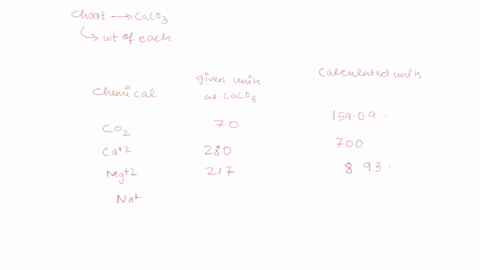 chart → CaCO3
↳ wt of each.
Chemical given units as CaCO3. Calculated units
CO2 70 159.09.
Ca+2 280 700
Mg+2 217 8 93.
Na+